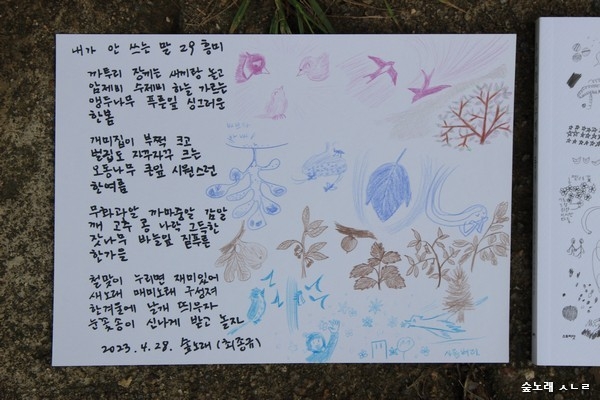 내가 안 쓰는 말 29 흥미
까투리 장끼는 새끼랑 놀고
암제비 수제비 하늘 가르는
앵두나무 푸른잎 싱그러운
한봄
개미집이 부쩍 크고
벌집도 자꾸자꾸 크는
오동나무 큰잎 시원스런
한여름
무화과알 까마중알 감알
깨 고추 콩 나락 그득한
잣나무 바늘잎 짙푸른
한가을
철맞이 누리면 재미있어
새노래 매미노래 구성져
한겨울에 날개 띄우자
눈꽃송이 신나게 받고 놀자
2023. 4. 28. 숲노래 (최종규)
숲노래 ㅅㄴㄹ